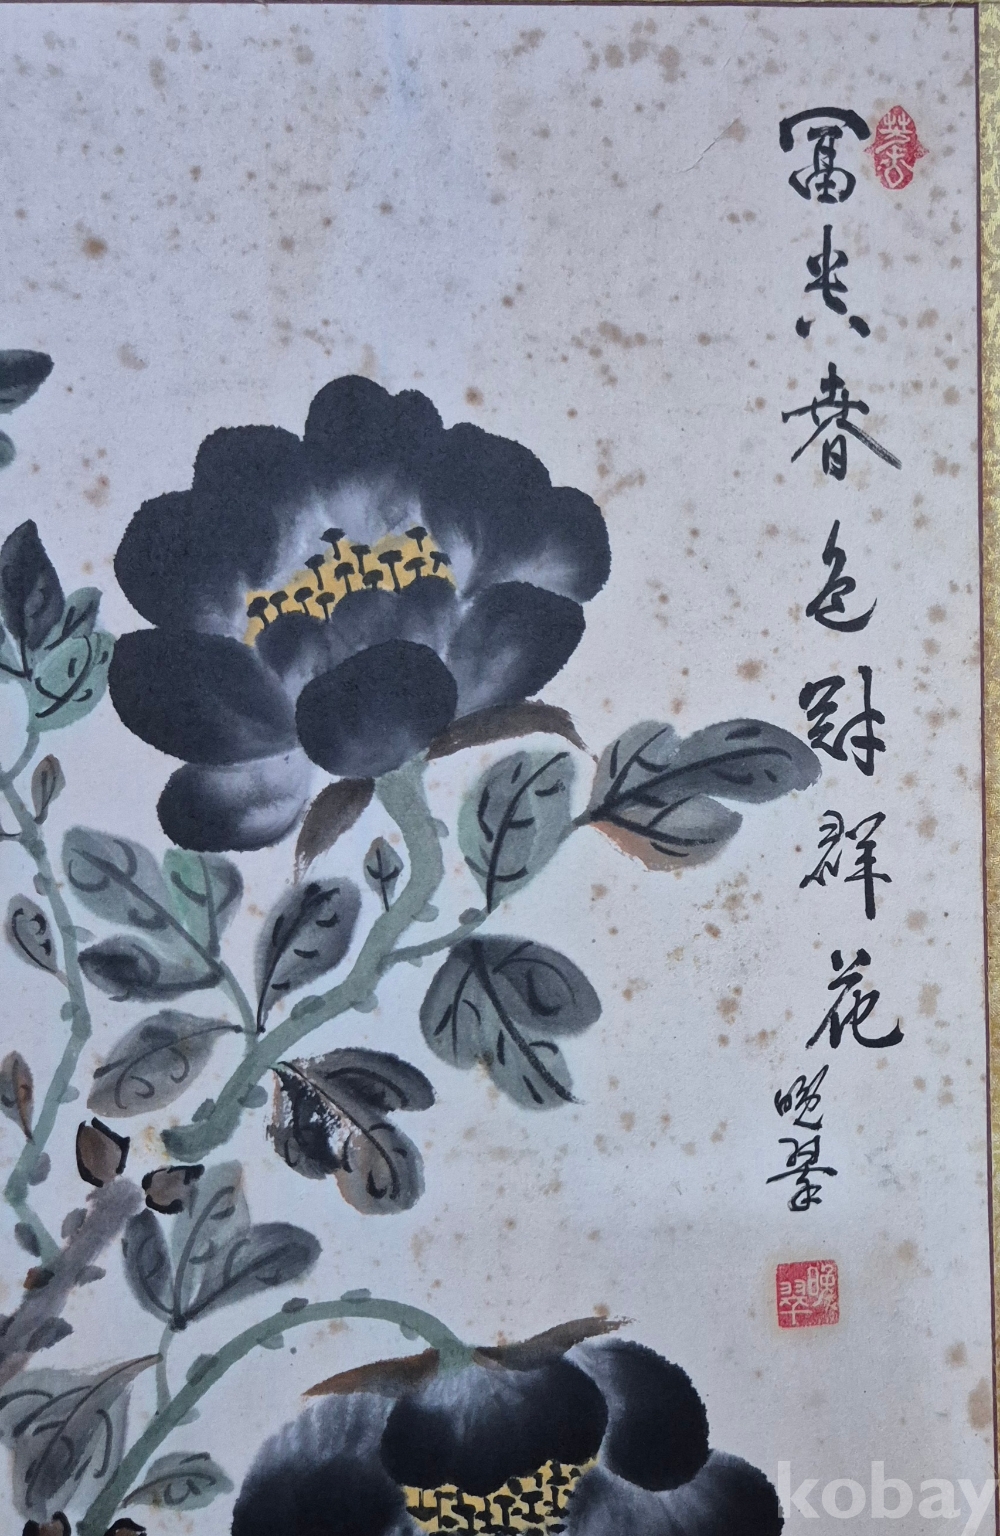 冨貴春色對群花
晩翠
晩翠
kobay